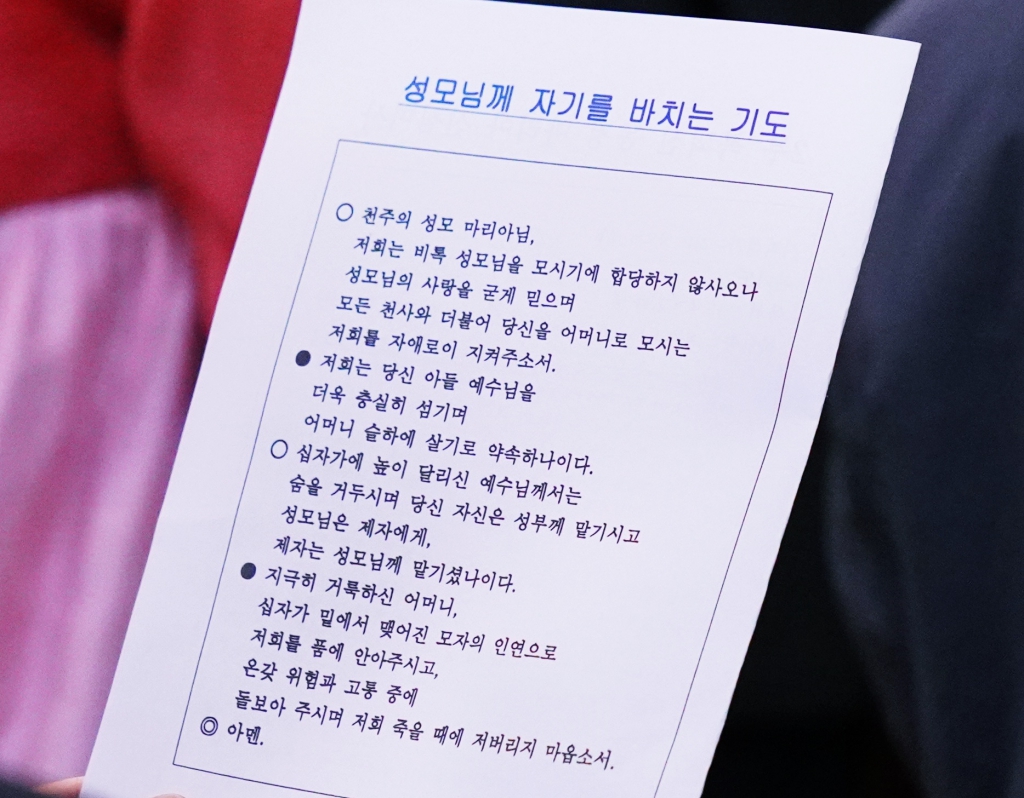 성모님께 자기를 바치는 기도
○ 천주의 성모 마리아님,
저희는 비록 성모님을 모시기에 합당하지 않사오나
성모님의 사랑을 굳게 믿으며
모든 천사와 더불어 당신을 어머니로 모시는
저희를 자애로이 지켜주소서.
● 저희는 당신 아들 예수님을
더욱 충실히 섬기며
어머니 슬하에 살기로 약속하나이다.
○ 십자가에 높이 달리신 예수님께서는
숨을 거두시며 당신 자신은 성부께 맡기시고
성모님은 제자에게,
제자는 성모님께 맡기셨나이다.
● 지극히 거룩하신 어머니,
십자가 밑에서 맺어진 모자의 인연으로
저희를 품에 안아주시고,
온갖 위험과 고통 중에
돌보아 주시며 저희 죽을 때에 저버리지 마옵소서.
◎ 아멘.